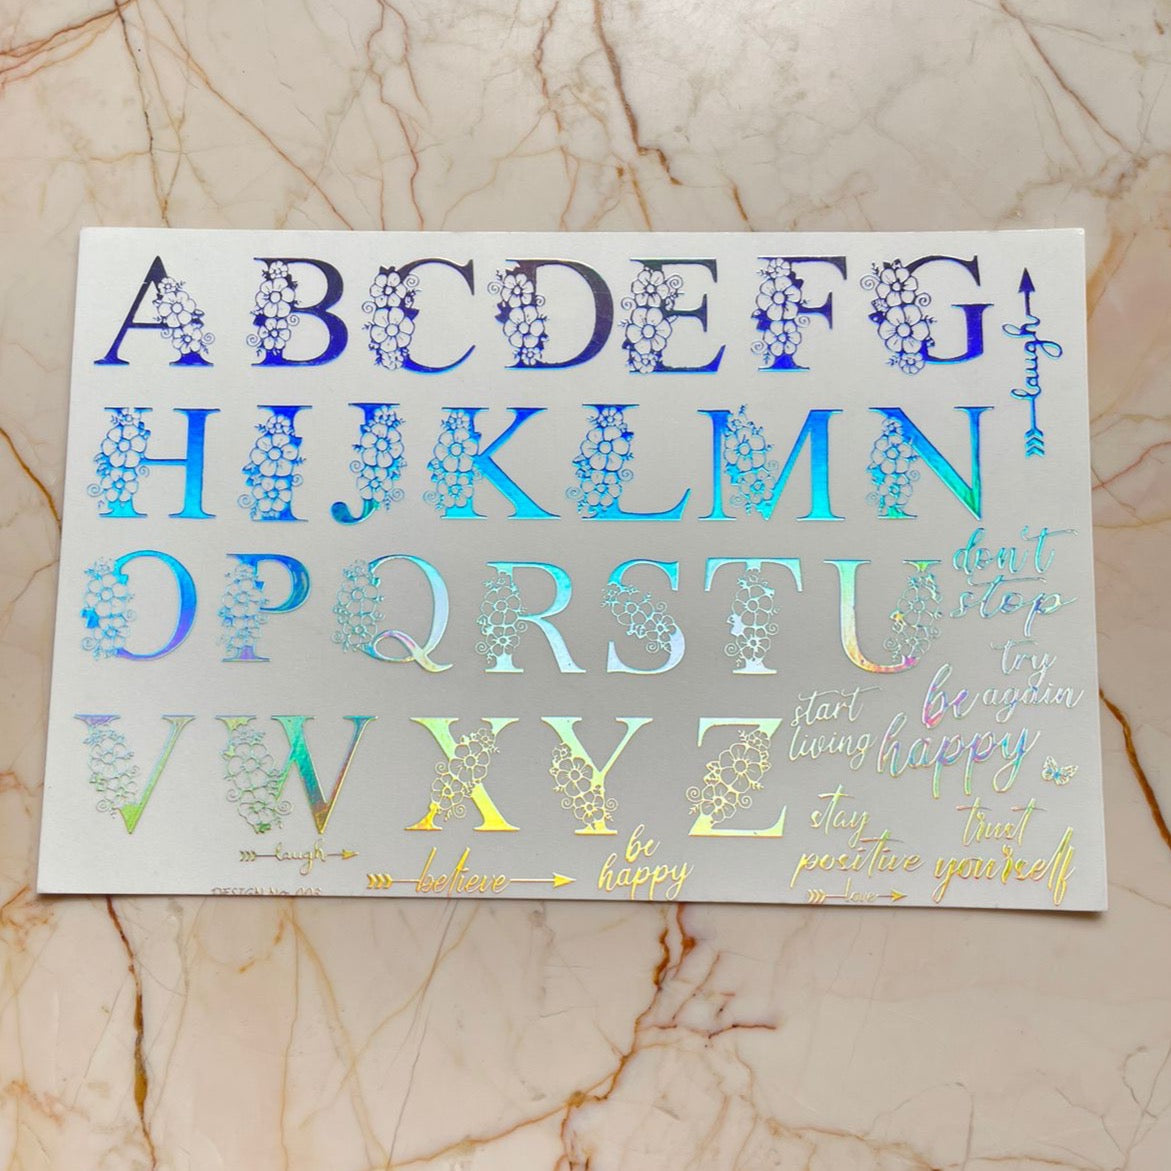 A B C D E F G
laugh
H I J K L M N
O P Q R S T U
don't
stop
try
again
be
happy
start
living
V W X Y Z
stay
positive
trust
yourself
laugh
believe
be
happy
love
DESIGN No. 003